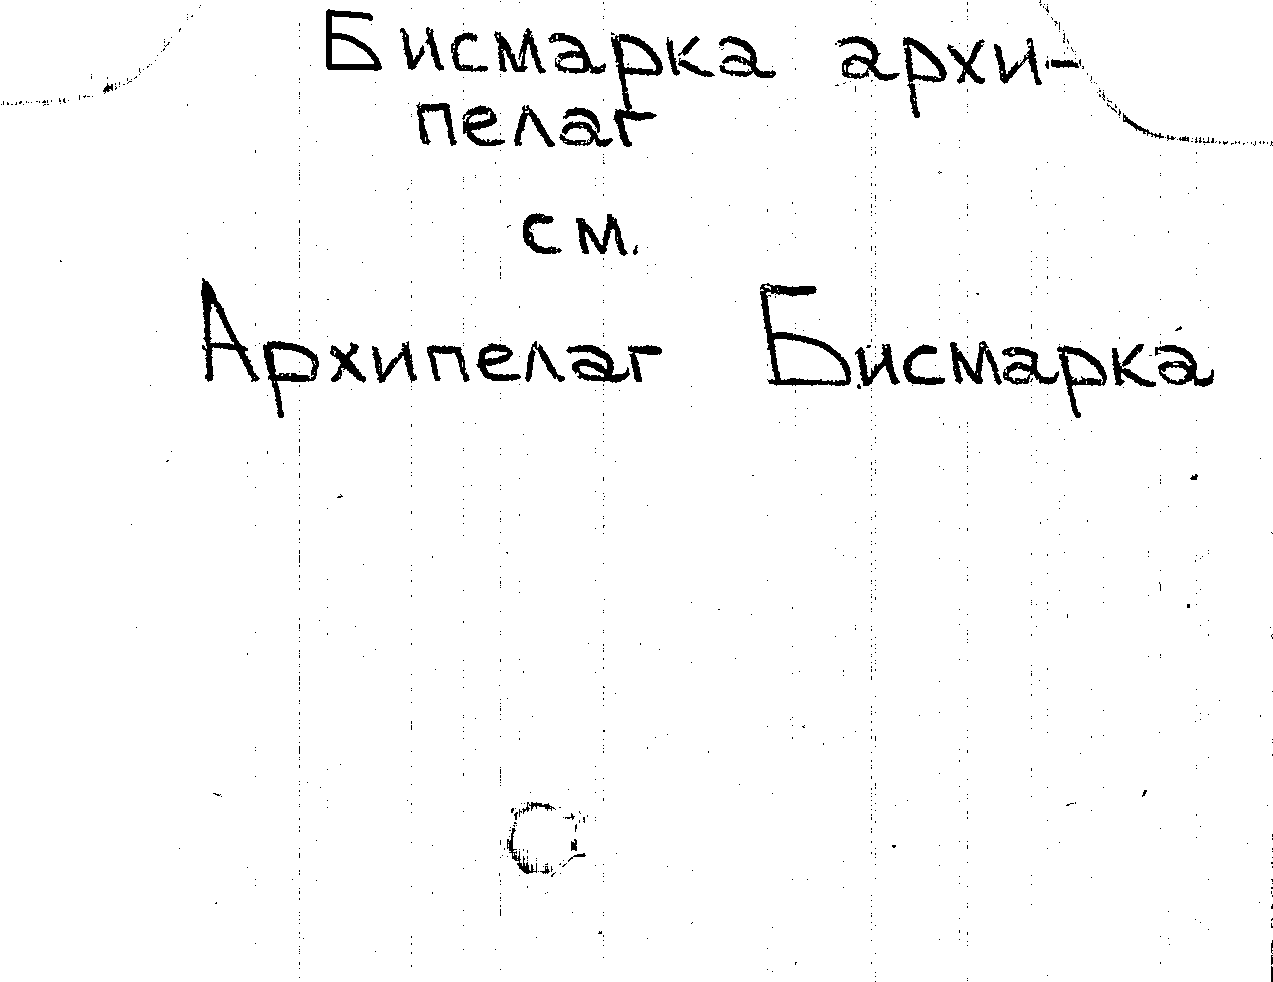 Бисмарка архи-
пелаг
см.
Архипелаг Бисмарка